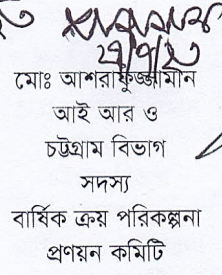 মোঃ আশরাফুজ্জামান
আই আর ও
চট্টগ্রাম বিভাগ
সদস্য
বার্ষিক ক্রয় পরিকল্পনা
প্রণয়ন কমিটি